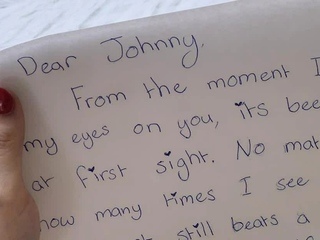 Dear Johnny,
From the moment I
my eyes on you, it's bee
at first sight. No mat
how many times I see
still beats a